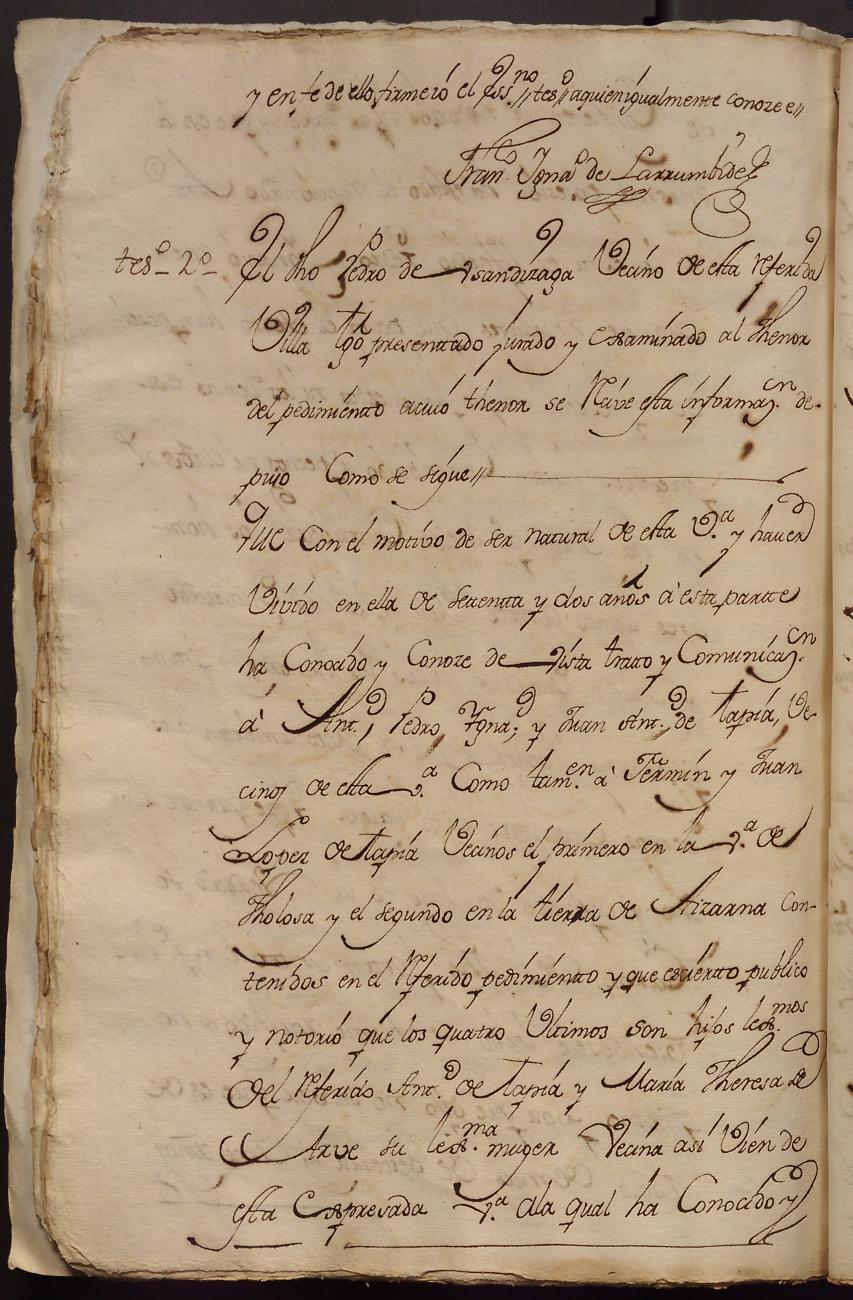 y en fe de ello, firme io el Ess.no // tes.o // a quien igualmente conoze e //
Fran.co Ygna.o de Larrumbide
tes.o 2.o
El dho Pedro de Vsandizaga Vecino de esta referida
Villa tgo presenttado jurado y examinado al thenor
del pedimientto acuio thenor se reciue esta informaz.on de-
puso Como se sigue //
Que Con el motivo de ser natural de esta V.a y hauer
Vivido en ella de settentta y dos años à esta partte
ha Conocido y Conoze de Vista tratto y Comunicaz.on
à Ant.o, Pedro, Ygna.o, y Juan Ant.o, de tapia, Ve-
cinos de esta V.a Como tam.en à Fermin y Juan
Lopez de tapia Vecinos el primero en la V.a de
Tholosa y el segundo en la tierra de Aizarna Con-
tenidos en el referido pedimientto y que es cierto publico
y nottorio que los quatro Ultimos son hijos lex.mos
del referido Ant.o de tapia y Maria Theresa de
Arve su lex.ma muger Vecina asi Vien de
esta Expresada V.a ala qual ha Conocido y